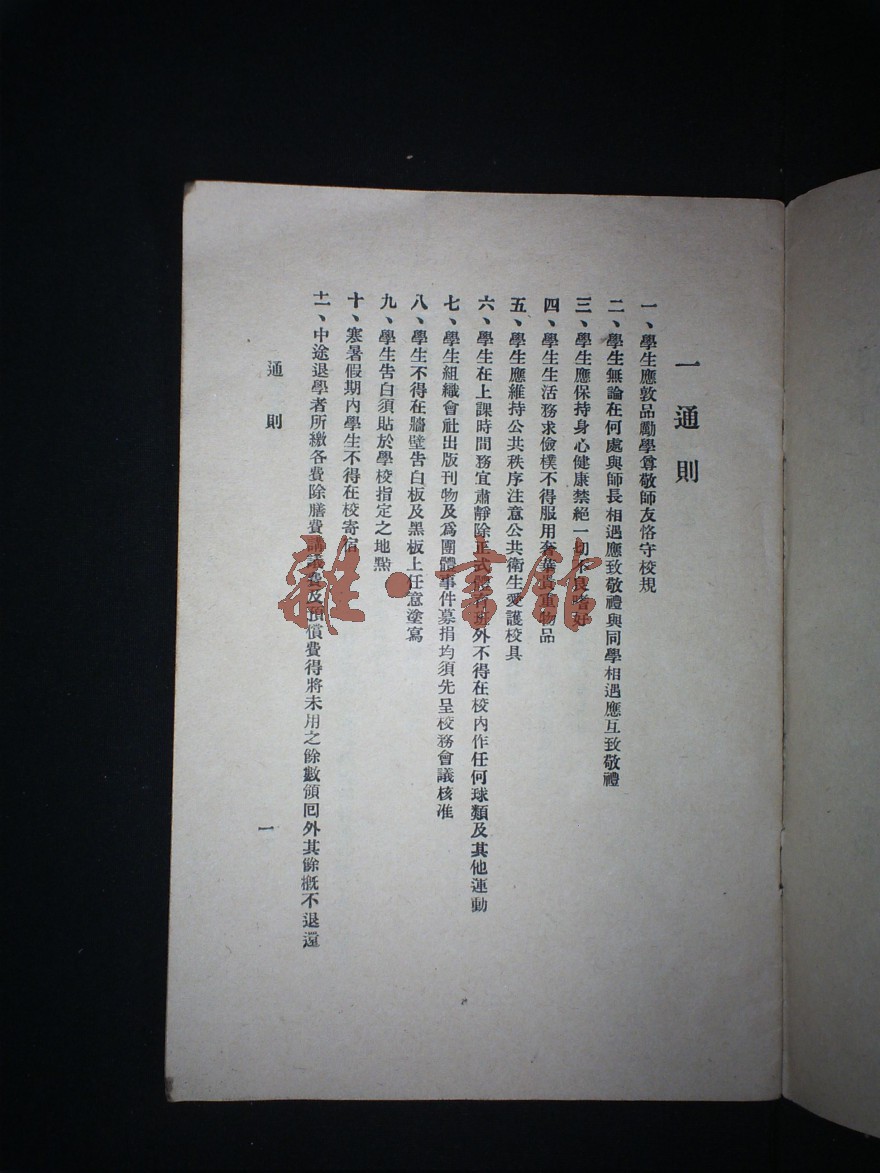 一 通 則
一、學生應敦品勵學尊敬師友恪守校規
二、學生無論在何處與師長相遇應致敬禮與同學相遇應互致敬禮
三、學生應保持身心健康禁絕一切不良嗜好
四、學生生活務求儉樸不得服用奢華貴重物品
五、學生應維持公共秩序注意公共衛生愛護校具
六、學生在上課時間務宜肅靜除正式體育班外不得在校內作任何球類及其他運動
七、學生組織會社出版刊物及爲團體事件募捐均須先呈校務會議核准
八、學生不得在牆壁告白板及黑板上任意塗寫
九、學生告白須貼於學校指定之地點
十、寒暑假期內學生不得在校寄宿
十一、中途退學者所繳各費除膳費講義費及預償費得將未用之餘數領囘外其餘概不退還
通 則
一
雜·書館